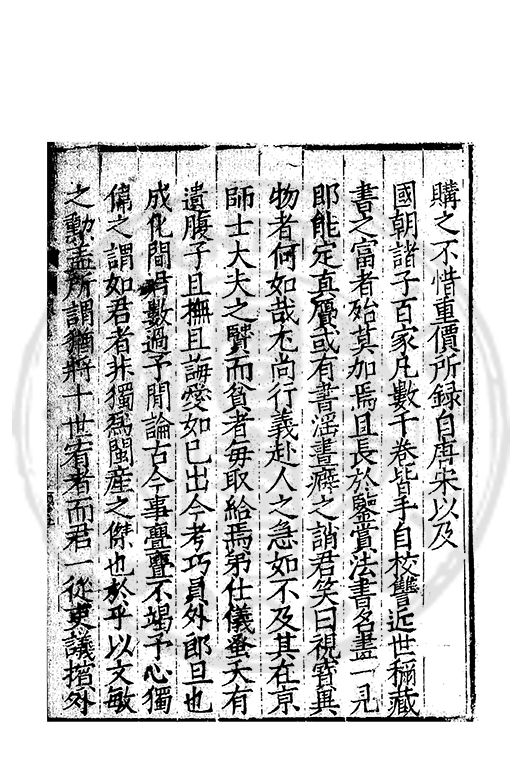 購之不惜重價所録自唐宋以及
國朝諸子百家凡數千卷皆手自校讐近世稱藏
書之富者殆莫加焉且長於鑒賞法書名畫一見
即能定真贗或有書淫畫癖之誚君笑曰視寳異
物者何如哉尤尚行義赴人之急如不及其在京
師士大夫之賢而貧者每取給焉弟仕儀蚤夭有
遺腹子且撫且誨愛如已出今考功員外郎旦也
成化間君數過予聞論古今事亹亹不竭予心獨
偉之謂如君者非獨爲閩産之傑也於乎以文敏
之勲盖所謂猶將十世宥者而君一從吏議擯外